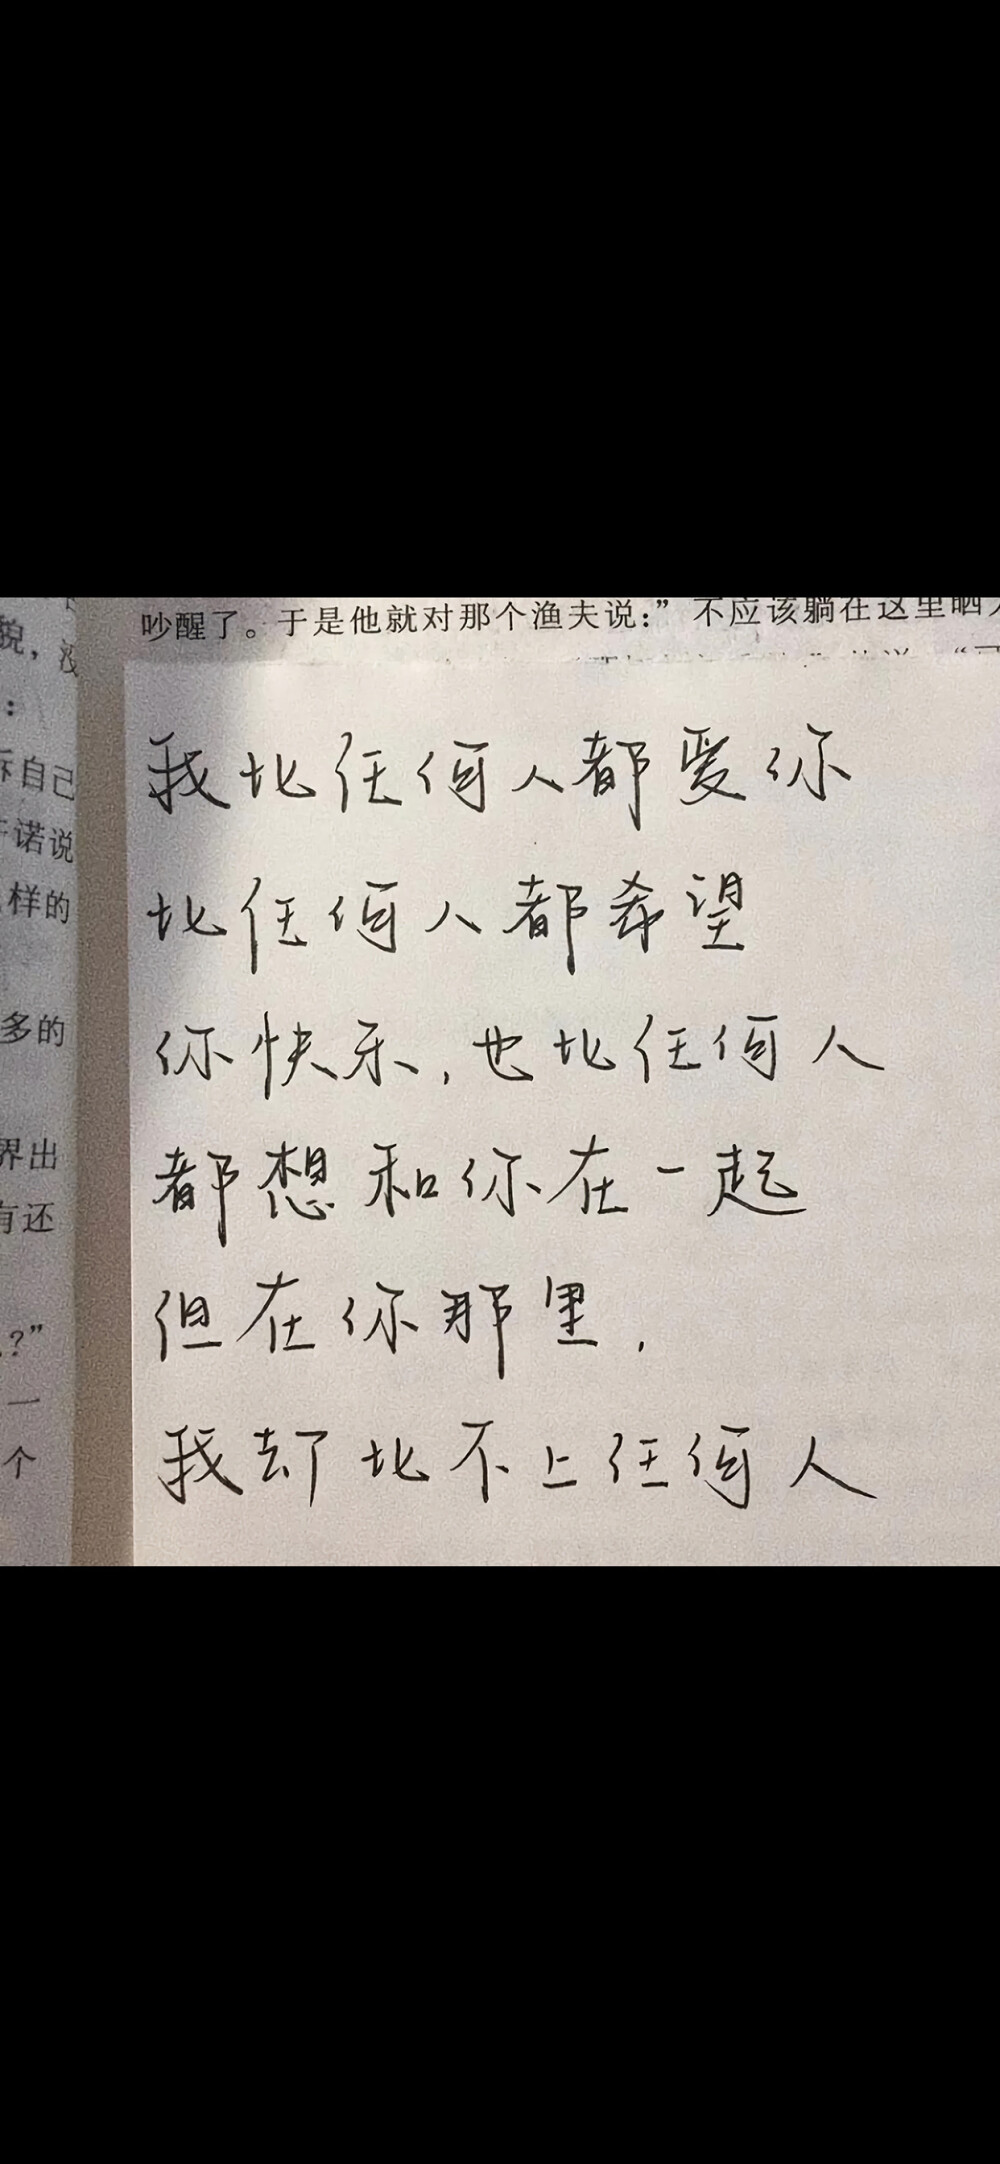 吵醒了。于是他就对那个渔夫说：”不应该躺在这里晒
貌，没
：
诉自己
许诺说
样的
多的
界出
有还
？”
一
个
我比任何人都爱你
比任何人都希望
你快乐，也比任何人
都想和你在一起
但在你那里，
我却比不上任何人